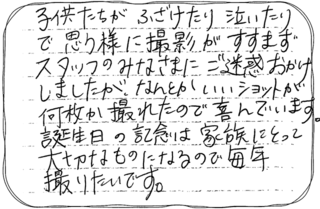 子供たちが ふざけたり 泣いたり
で 思う様に 撮影が すすまず
スタッフのみなさまに ご迷惑おかけ
しましたが、なんとか いいショットが
何枚か 撮れたので 喜んでいます。
誕生日の 記念は 家族にとって
大切なものになるので 毎年
撮りたいです。